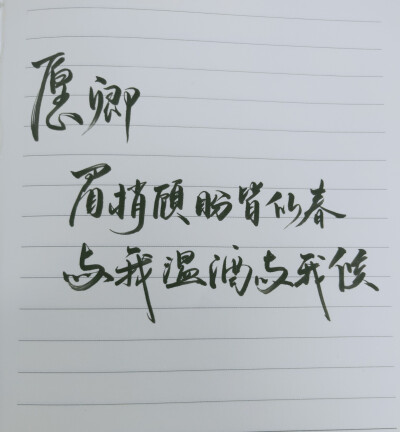 愿卿
眉梢顾盼皆似春
与我温酒与我候